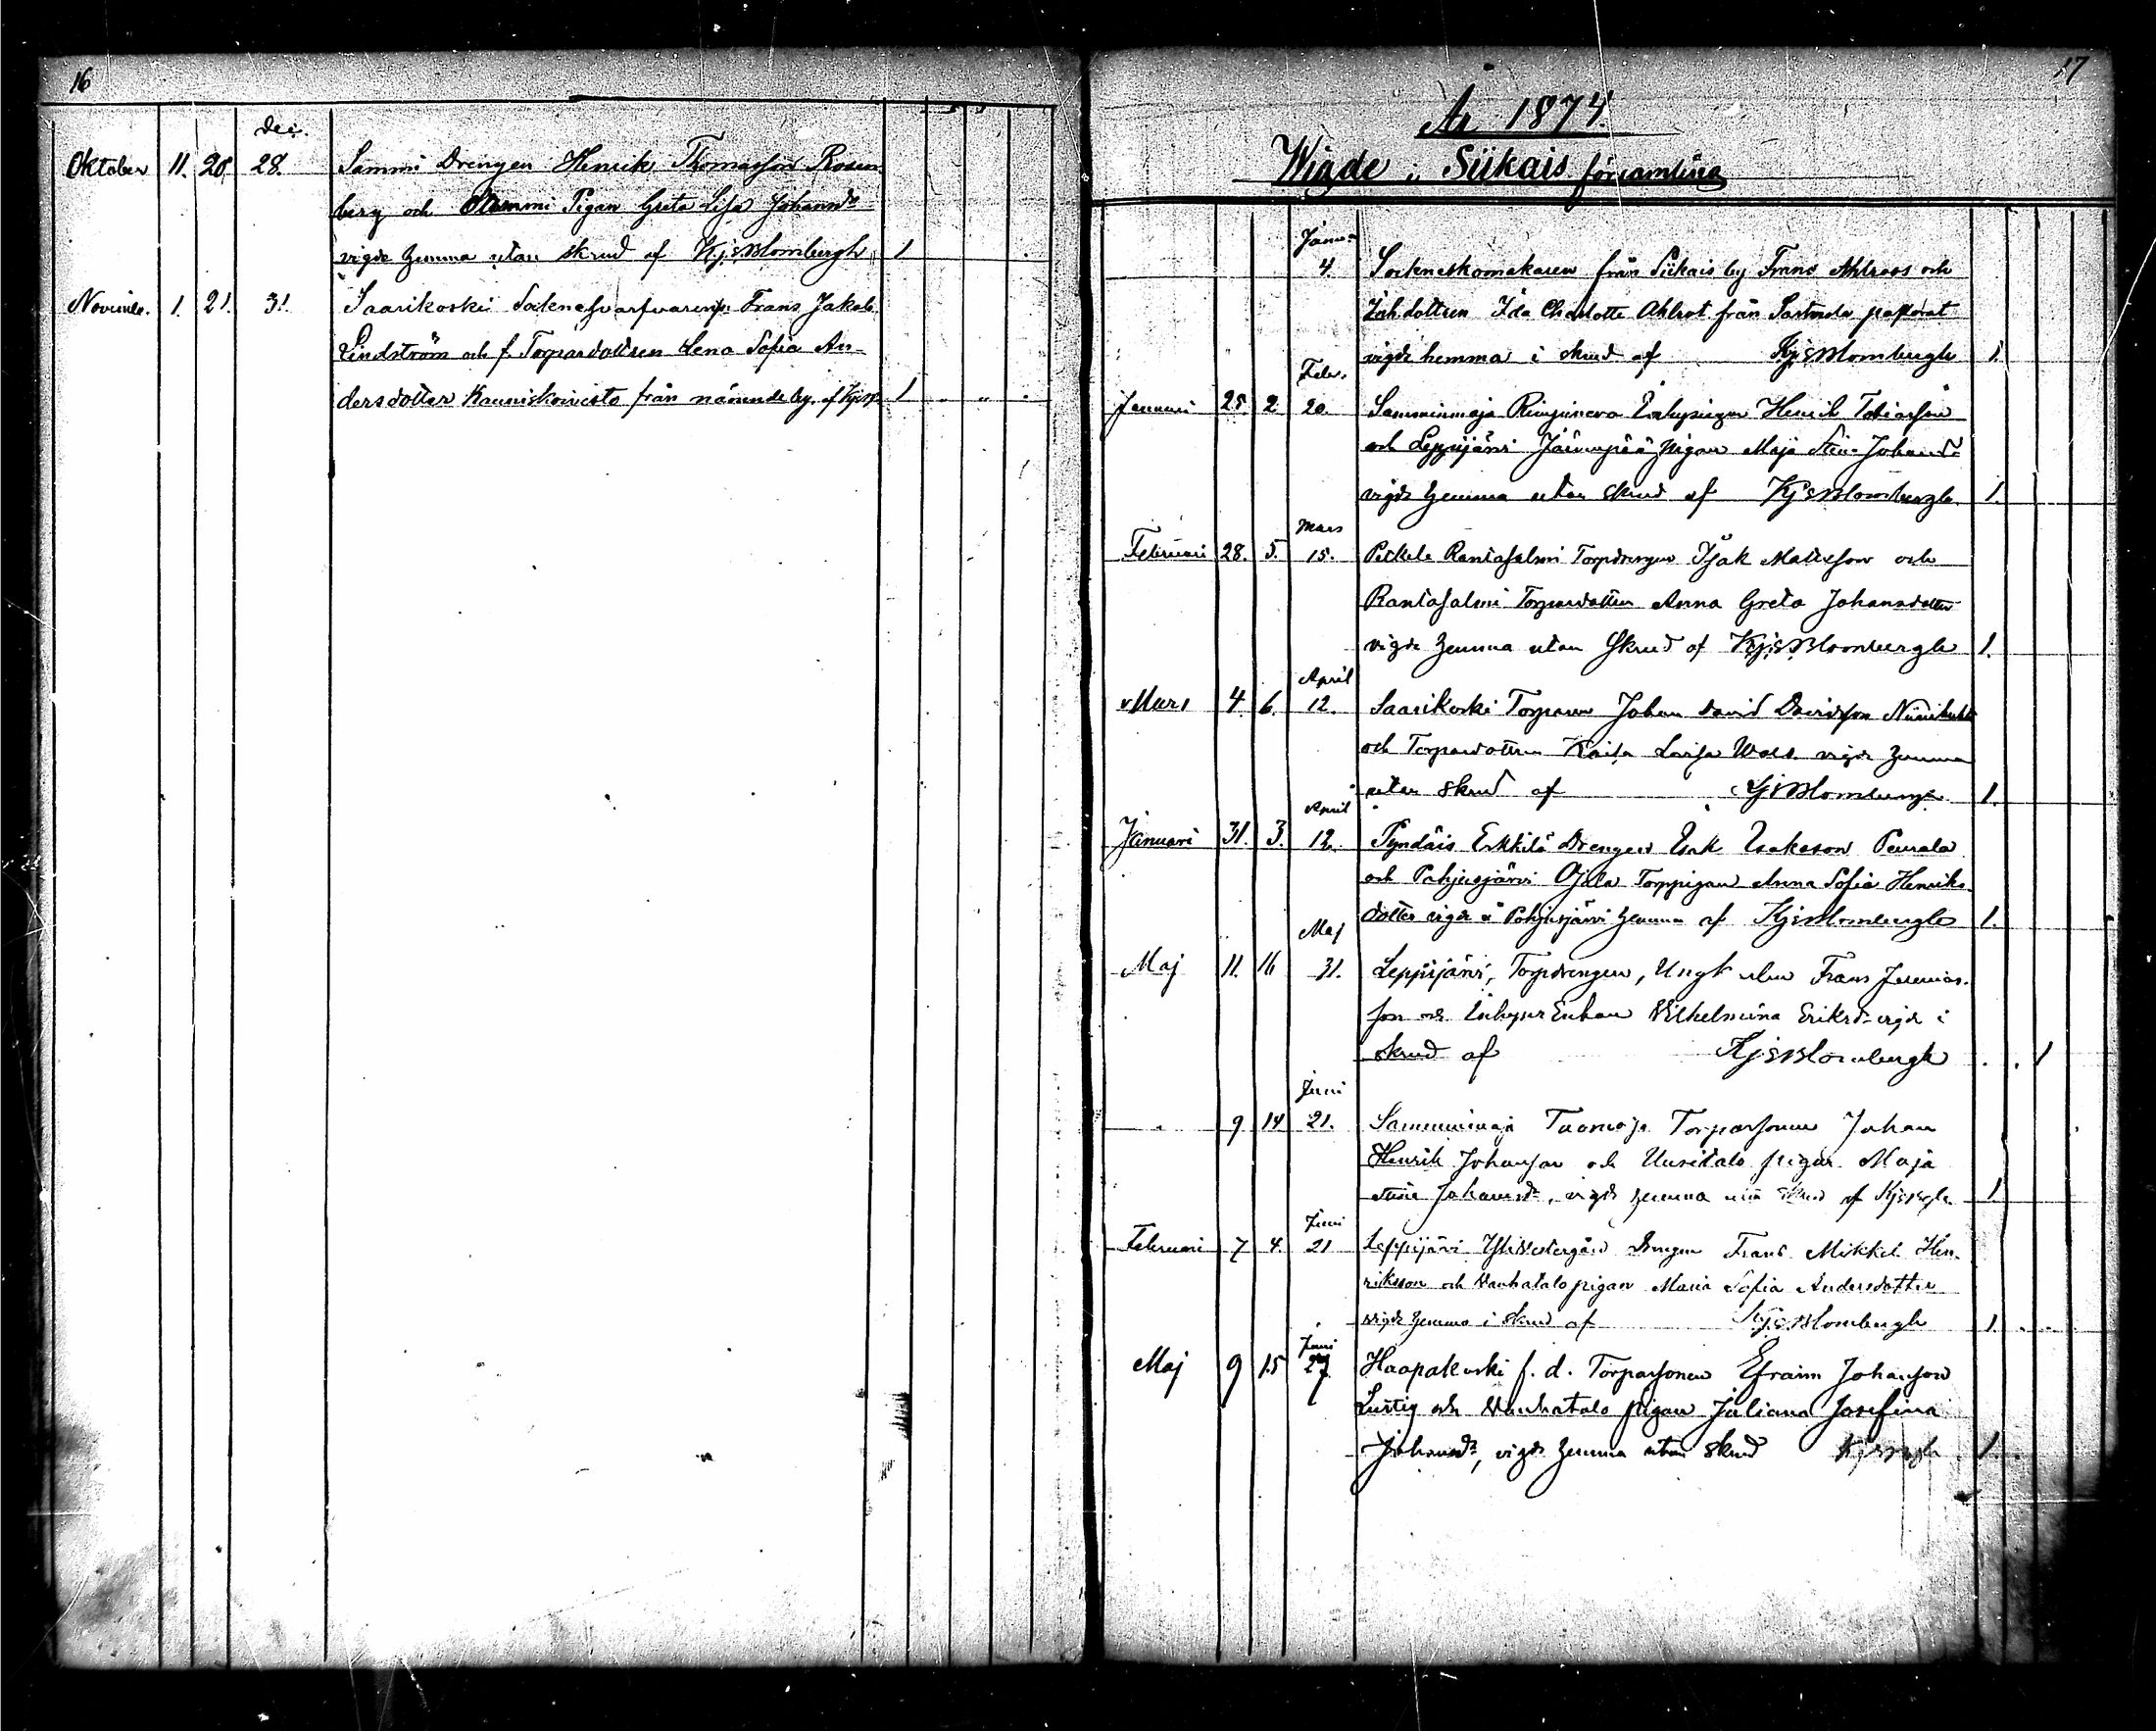 16
Dec.
Oktober 11. 20. 28. Sammi Drengen Henrik Thomasson Rosen
berg och Pigan Greta Lisa Johansdr
vigde hemma utan skrud af KjsBlombergh 1
Novemb. 1. 21. 31. Saarikoski Frans Jakob
Lindström och f. Torpardottren Lena Sofia An-
dersdotter Kauniskoivisto från nämnde by. af 1
17
År 1874.
Wigde i Siikais församling
Janu.
4. Sockneskomakaren från Siikais by Frans Ahlroos och
Ida Charlotte Ahlrot från Sastmola pastorat
vigde hemma i skrud af KjsBlombergh 1.
Febr.
Januari 25 2 20. Samminmaja Inhysingen Henrik Tobiasson
och Leppijärvi Jäänupää pigan Maja Stina Johansdr
vigde hemma utan skrud af KjsBlombergh 1.
Mars
Februari 28. 5. 15. Rantasalmi Torpdrengen Isak Mattsson och
Rantasalmi Torpardottren Anna Greta Johansdotter
vigde hemma utan skrud af KjsBlombergh 1.
April
Mars 4. 6. 12. Saarikoski Torparen Johan David Davidsson
och Torpardottren Kaisa Lovisa vigde hemma
utan skrud af KjsBlombergh 1.
April
Januari 31. 3. 12. Pyndäis Erkkilä Drengen Isak Isaksson Peurala
och Pohjusjärvi Ojala Torppigan Anna Sofia Henriks
dotter vigde i Pohjusjärvi hemma af KjsBlombergh 1.
Maj
Maj 11. 16 31. Leppijärvi, Torpdrengen, Ungk Frans Jeremias-
son och Inhyses Enkan Vilhelmina Eriksdr vigde i
skrud af KjsBlombergh . . 1
Juni
" 9 14 21. Samminmaja Tuomoja Torparsonen Johan
Henrik Johansson och Uusitalo pigan Maja
Stina Johansdr, vigde hemma utan skrud af 1
Juni
Februari 7 4. 21 Leppijärvi drengen Frans Mikkel Hen-
riksson och Vanhatalo pigan Maria Sofia Andersdotter
vigde hemma i skrud af KjsBlombergh 1. . .
Juni
Maj 9 15 27 Haapakoski f. d. Torparsonen Efraim Johansson
Lustig och Vanhatalo pigan Juliana Josefina
Johansdr, vigde hemma utan skrud 1.